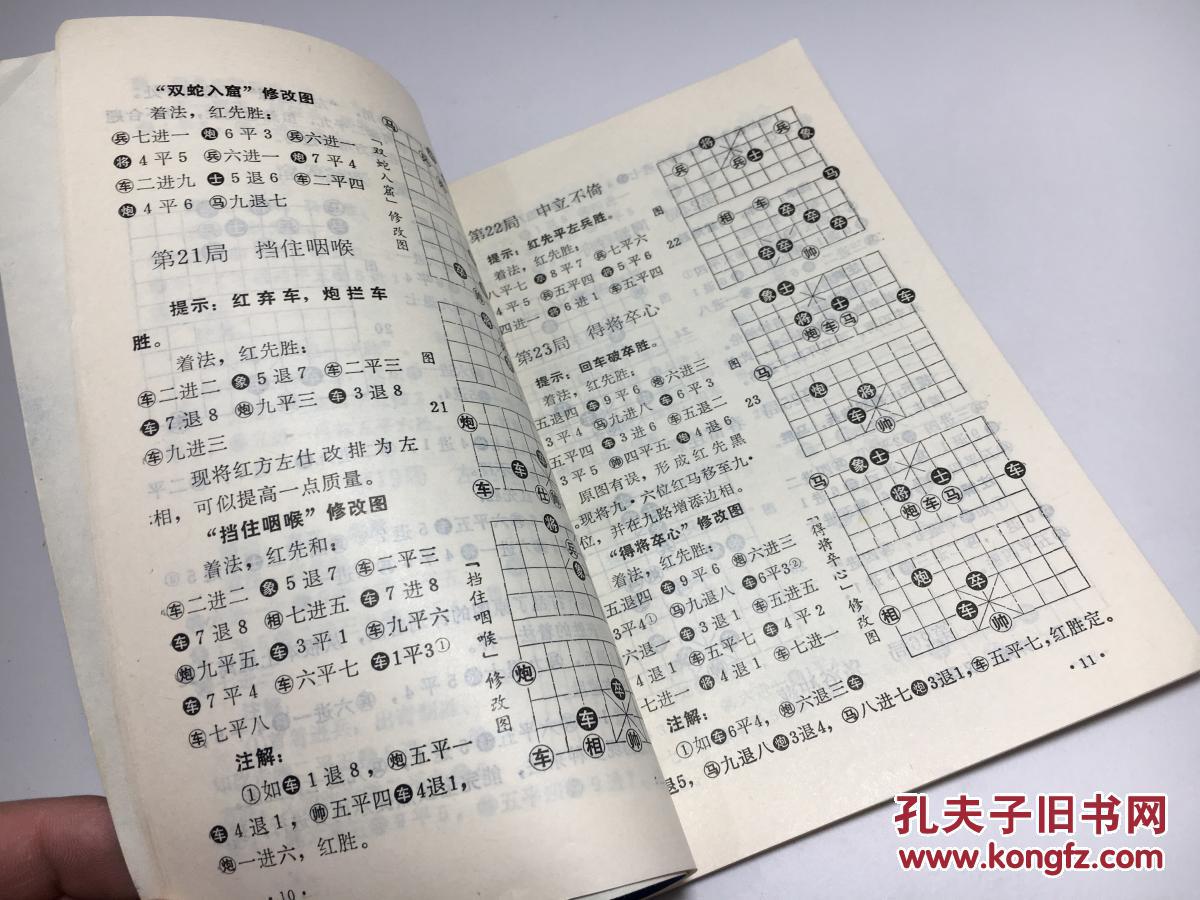 “双蛇入窟”修改图
着法，红先胜：
兵七进一 炮6平3 兵六进一
将4平5 兵六进一 炮7平4
车二进九 士5退6 车二平四
炮4平6 马九退七
「双蛇入窟」修改图
第21局 挡住咽喉
提示：红弃车，炮拦车
胜。
着法，红先胜：
车二进二 象5退7 车二平三
车7退8 炮九平三 车3退8
车九进三
现将红方左仕改排为左
相，可似提高一点质量。
图
21
“挡住咽喉”修改图
着法，红先和：
车二进二 象5退7 车二平三
车7退8 相七进五 车7进8
炮九平五 车3平1 车九平六
车7平4 车六平七 车1平3①
车七平八
「挡住咽喉」修改图
注解：
①如车1退8，炮五平一
车4退1，帅五平四车4退1，
炮一进六，红胜。
·10·
第22局 中立不倚
提示：红先平左兵胜。
着法，红先胜：
八平七 卒8平7 兵七平六
4平5 兵五平四 将5平6
四进一 将6进1 车五平四
图
22
第23局 得将卒心
提示：回车破卒胜。
着法，红先胜：
五退四 车9平6 炮六进三
3平4 马九进八 车6平3
五平四 车3进6 车五退二
3平5 帅四平五 炮4退6
原图有误，形成红先黑
。现将九·六位红马移至九·
位，并在九路增添边相。
图
23
“得将卒心”修改图
着法，红先胜：
五退四 车9平6 炮六进三
3平4① 马九退八 车6平3②
六退一 车3退1 车五进五
4退1 车五平七 车4平2
七进一 将4退1 车七进一
「得将卒心」修改图
注解：
①如车6平4，炮六退三车
退5，马九退八炮3退4，马八进七炮3退1，车五平七，红胜定。
·11·
孔夫子旧书网
www.kongfz.com